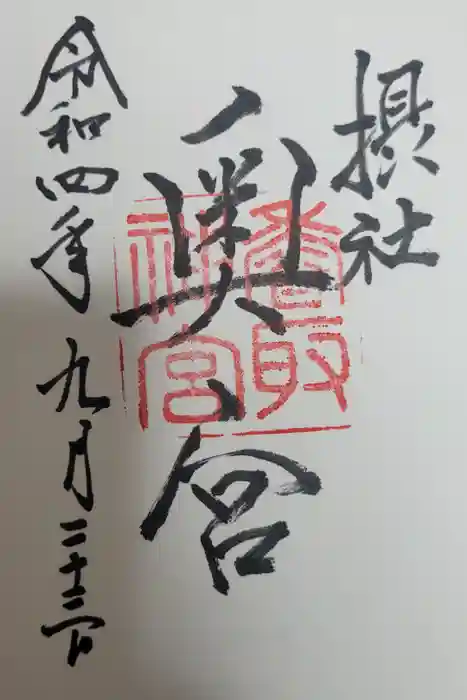 摂社
奥宮
香取
神宮
令和四年九月二十三日